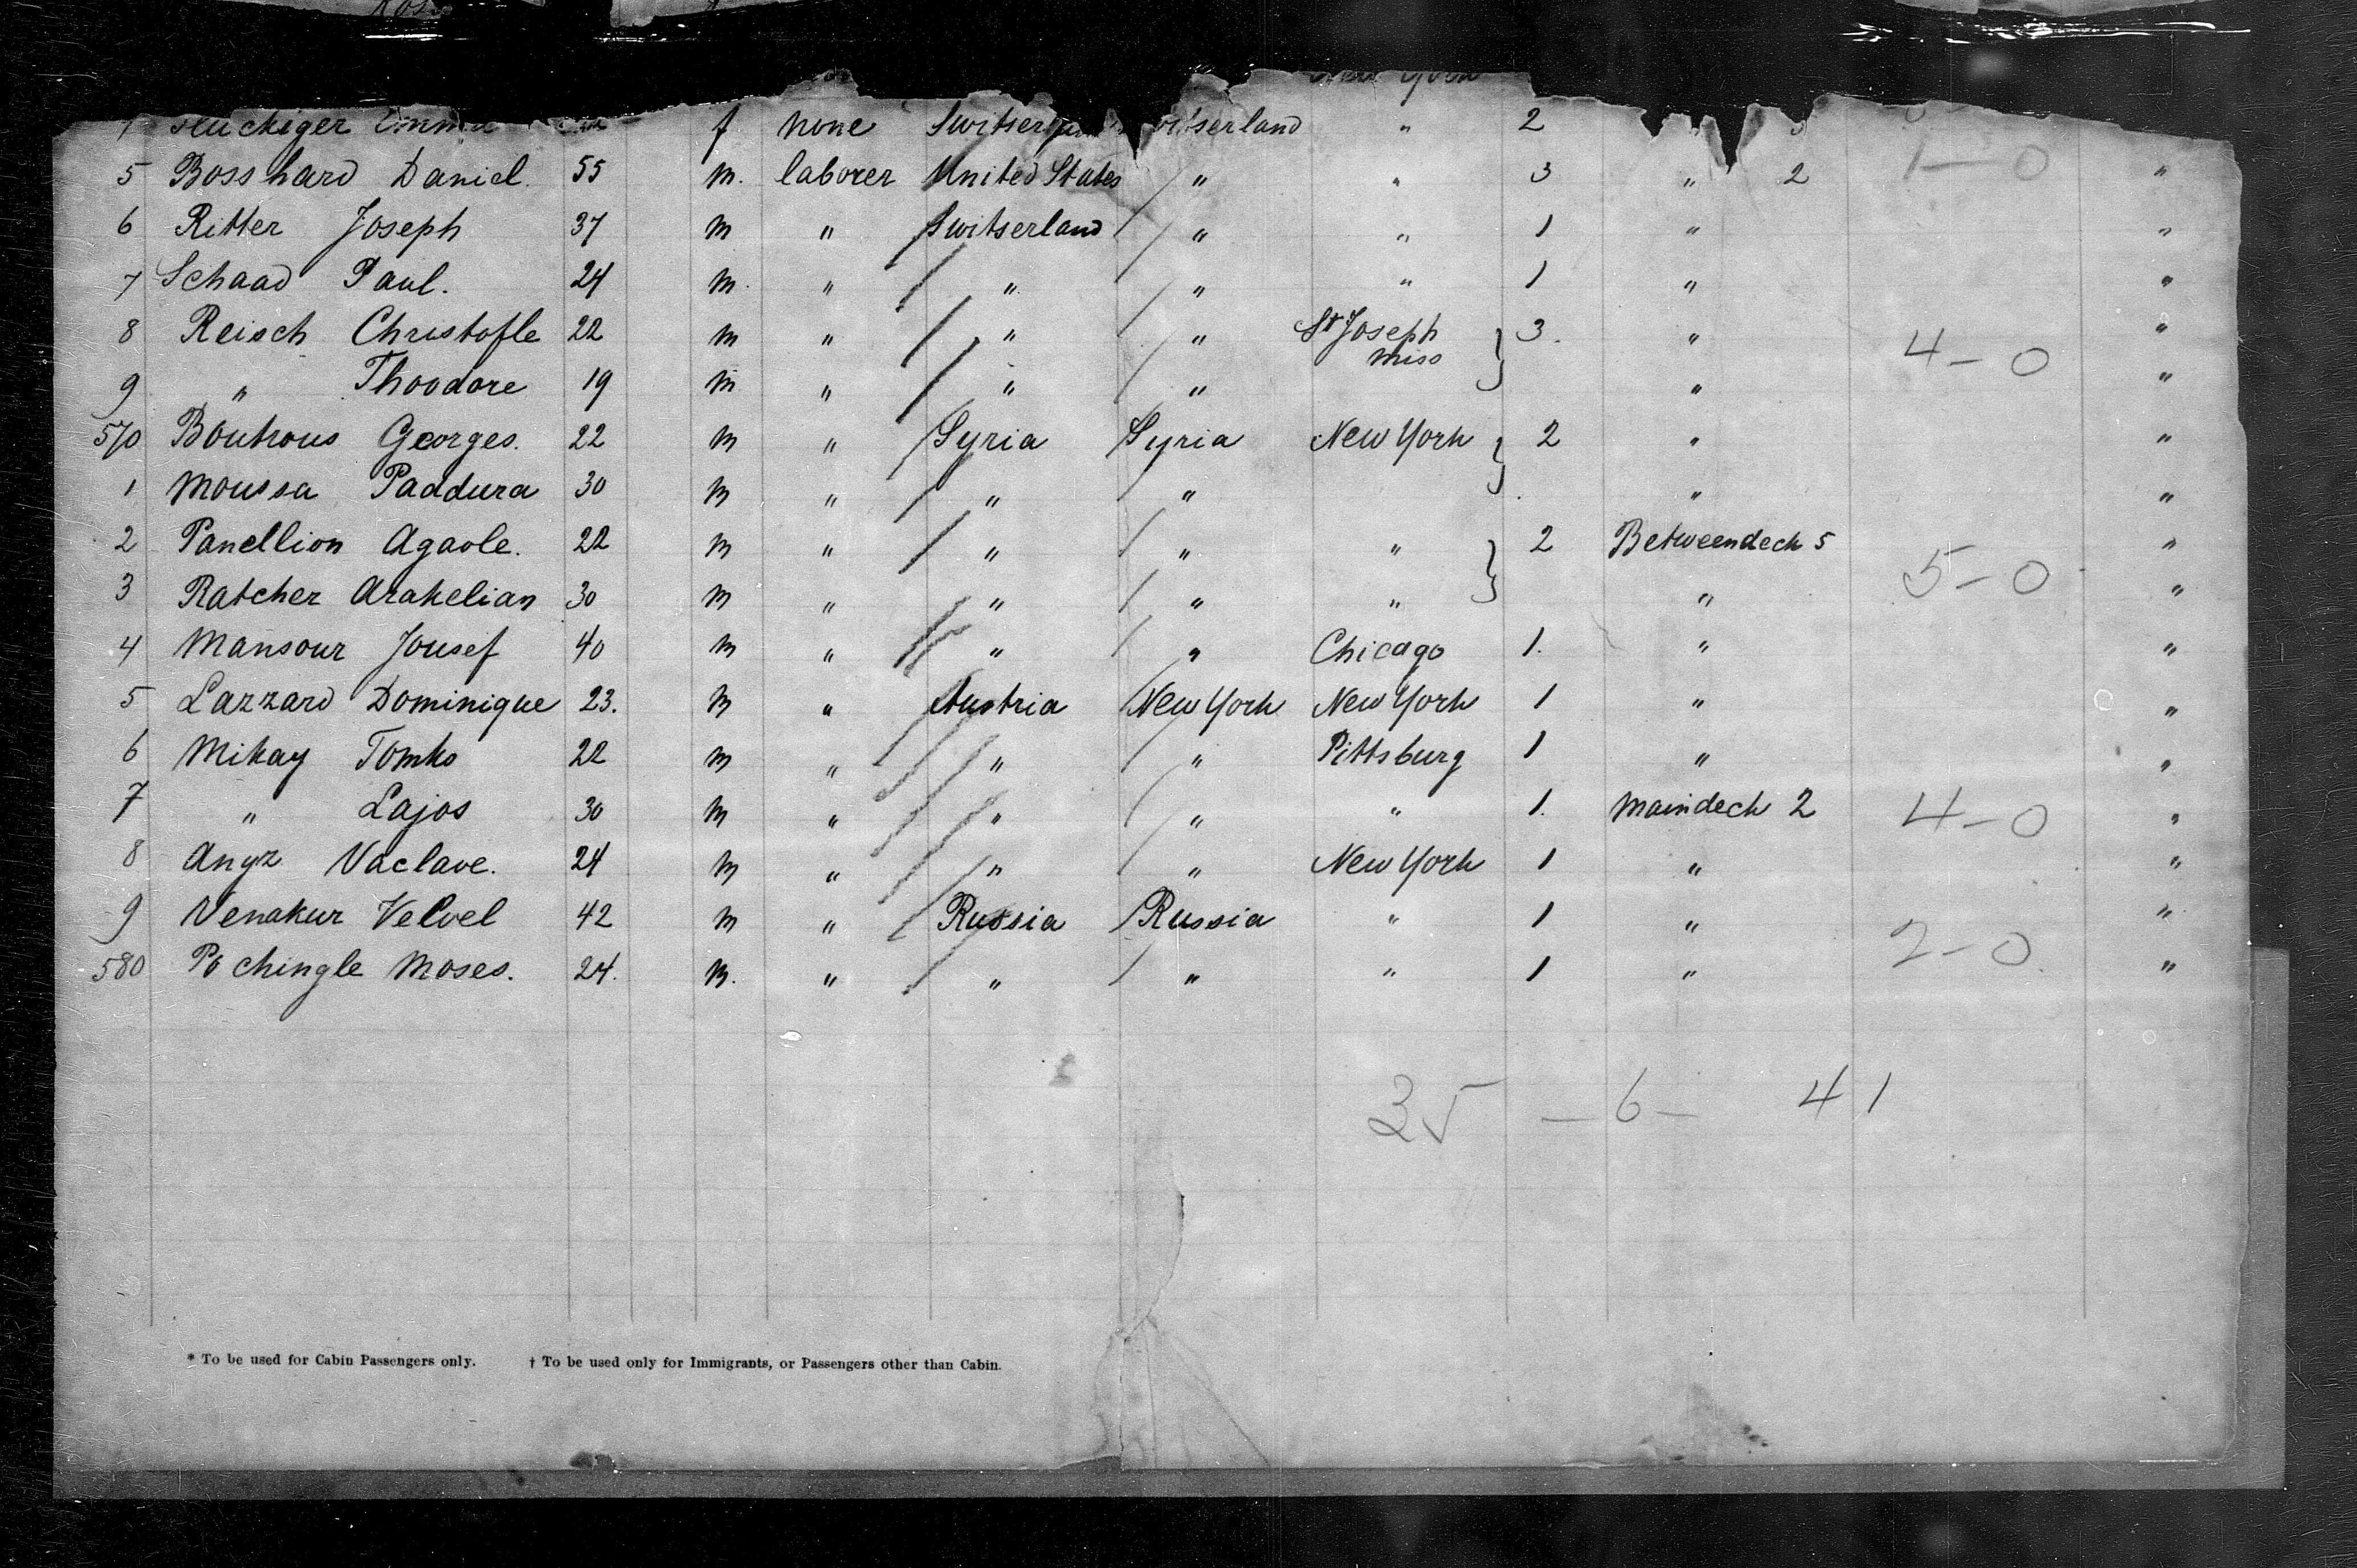 New York
Fluckiger Emma f none Switserland Switserland " 2 "
5 Bosshard Daniel. 55 m. laborer United States " " 3 " 2 1-0 "
6 Ritter Joseph 37 m " Switserland " " 1 " "
7 Schaad Paul. 24 m. " " " " 1 " "
8 Reisch Christofle 22 m " " " St Joseph miss } 3. " 4-0 "
9 " Thoodore 19 m " " " " "
570 Boutrous Georges. 22 m " Syria Syria New York } 2 " "
1 Moussa Paddura 30 m " " " " "
2 Panellion Agaole. 22 m " " " " } 2 Betweendeck 5 5-0 "
3 Ratcher Arakelian 30 m " " " " " "
4 Mansour Jousef 40 m " " " Chicago 1. " "
5 Lazzard Dominique 23. m " Austria New York New York 1 " "
6 Mikay Tomko 22 m " " " Pittsburg 1 " "
7 " Lajos 30 m " " " " 1. Maindeck 2 4-0 "
8 Angz Vaclave. 24 m " " " New York 1 " "
9 Venakur Velvel 42 m " Russia Russia " 1 " "
580 Pochingle Moses. 24. m. " " " " 1 " 2-0 "
35 - 6 - 41
* To be used for Cabin Passengers only. † To be used only for Immigrants, or Passengers other than Cabin.